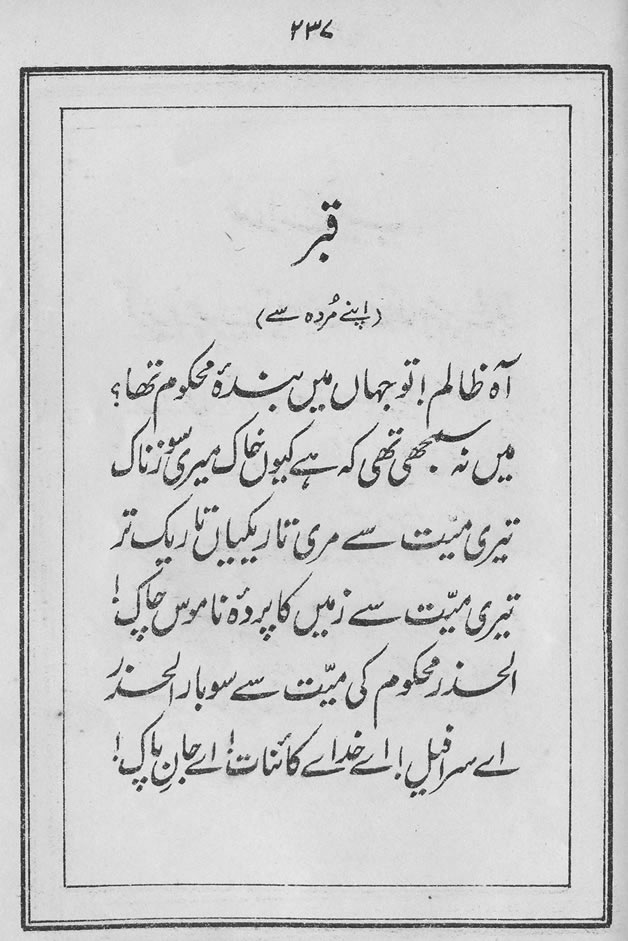 ۲۳۷
قبر
(اپنے مُردہ سے)
آہ ظالم! تو جہاں میں بندۂ محکوم تھا؟
میں نہ سمجھی تھی کہ ہے کیوں خاک میری سوزناک
تیری میّت سے مری تاریکیاں تاریک تر
تیری میّت سے زمیں کا پردۂ ناموس چاک!
الحذر محکوم کی میّت سے سوبار الحذر
اے سرافیل! اے خداے کائنات! اے جانِ پاک!